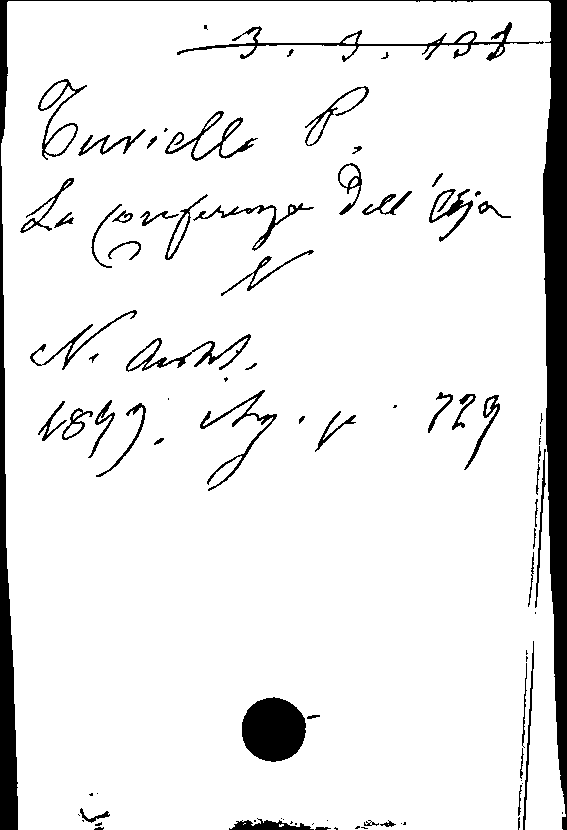 3. 3. 138
Turiello P.
La conferenza dell'Aja
N. Antol.
1899. Ag. p. 729